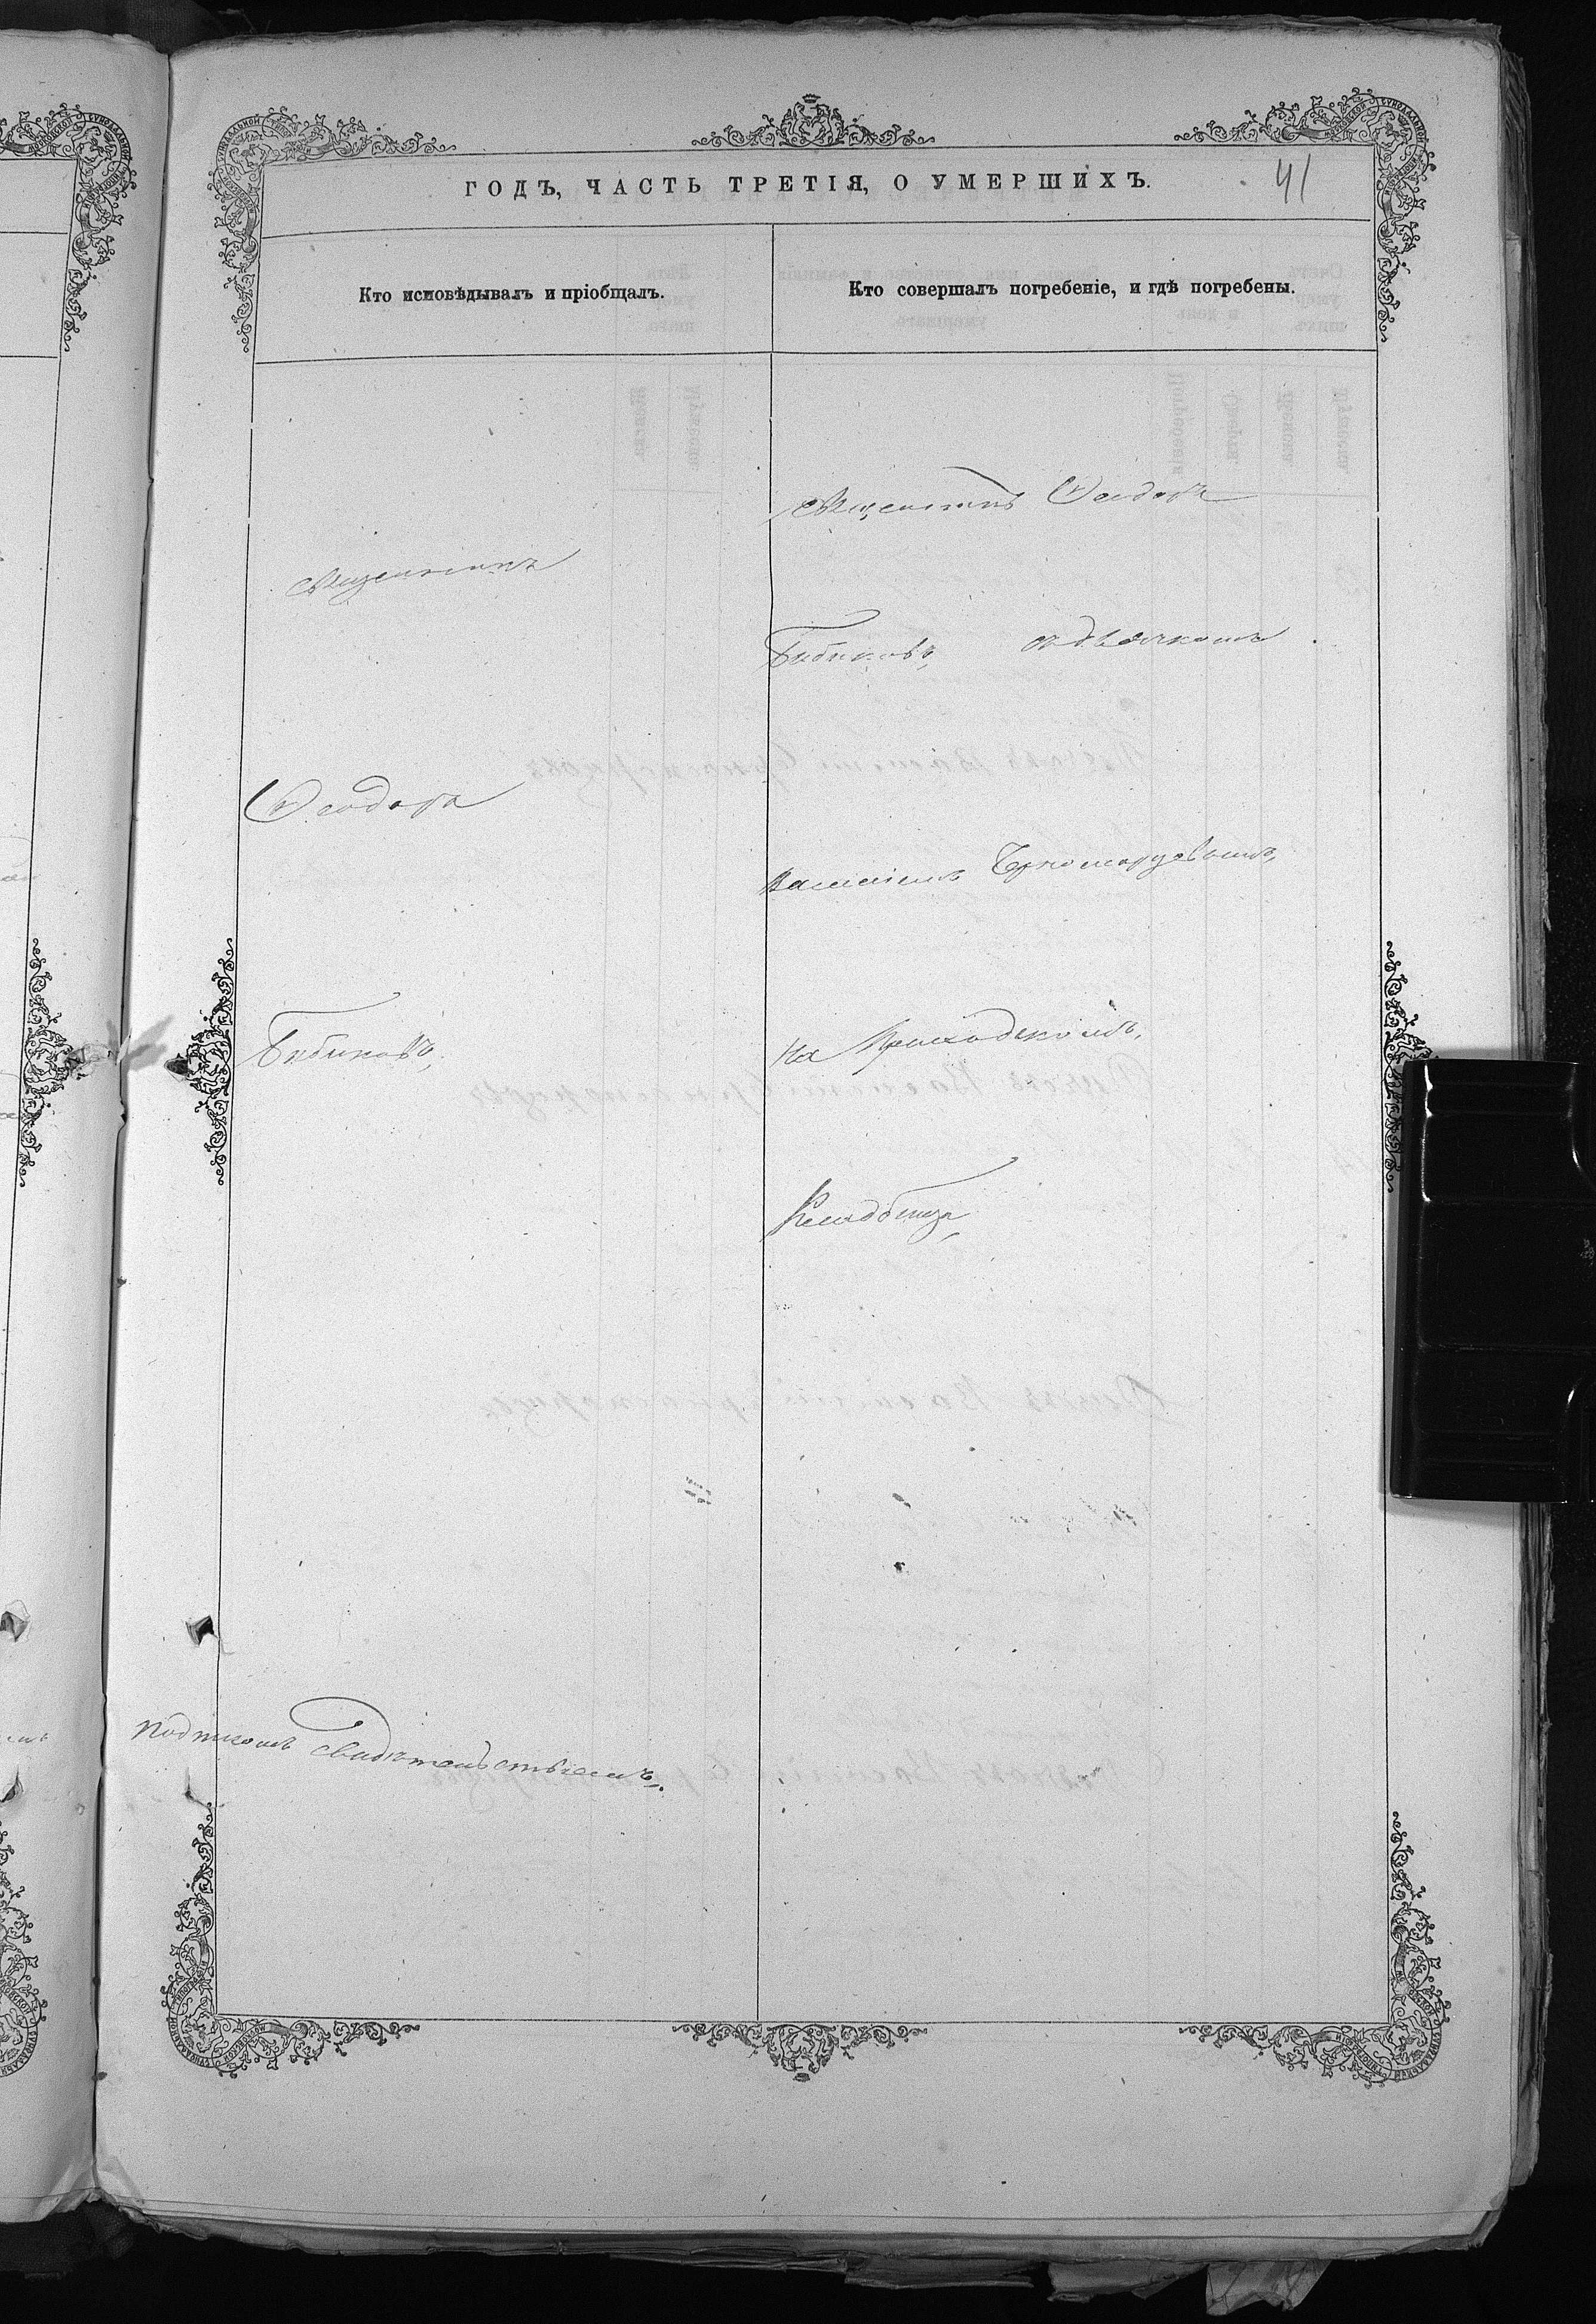 ГОДЪ, ЧАСТЬ ТРЕТІЯ, О УМЕРШИХЪ.
41
Кто исповѣдывалъ и пріобщалъ.
Священникъ
Ѳеодоръ
Бибиковъ,
Кто совершалъ погребеніе, и гдѣ погребены.
Священникъ Ѳеодоръ
Бибиковъ, съ дьячкомъ
Василіемъ
на Приходскомъ,
Кладбищѣ,
свидѣтельствіемъ.